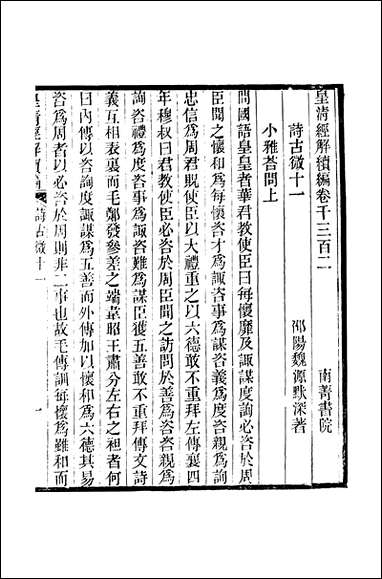 皇淸經解續編卷千三百二　南菁書院
詩古微十一　邵陽魏源默深著
小雅荅問上
問國語皇皇者華君教使臣曰每懷靡及諏謀度詢必咨於周
臣聞之懷和爲每懷咨才爲諏咨事爲謀咨義爲度咨親爲詢
忠信爲周君貺使臣以大禮重之以六德敢不重拜左傳襄四
年穆叔曰君教使臣必咨於周臣聞之訪問於善爲咨咨親爲
詢咨禮爲度咨事爲諏咨難爲謀臣獲五善敢不重拜傳文詩
義互相表裏而毛鄭發參差之端韋昭王肅分左右之袒者何
曰內傳以咨詢度諏謀爲五善而外傳加以懷和爲六德其易
咨爲周者以必咨於周則非二事也故毛傳訓每懷爲雖和而
皇淸經解續編　詩古微十一　一